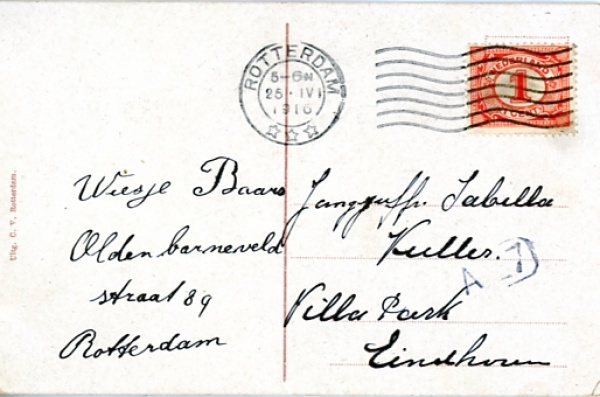 ROTTERDAM
5-6N
25 IV
1916
NEDERLAND
1
CENT
Wiesje Baars
Oldenbarneveld
straat 89
Rotterdam
Jongejuffr. Isabella
Kuller.
Villa Park
Eindhoven
A
7
Uitg. C. V. Rotterdam.